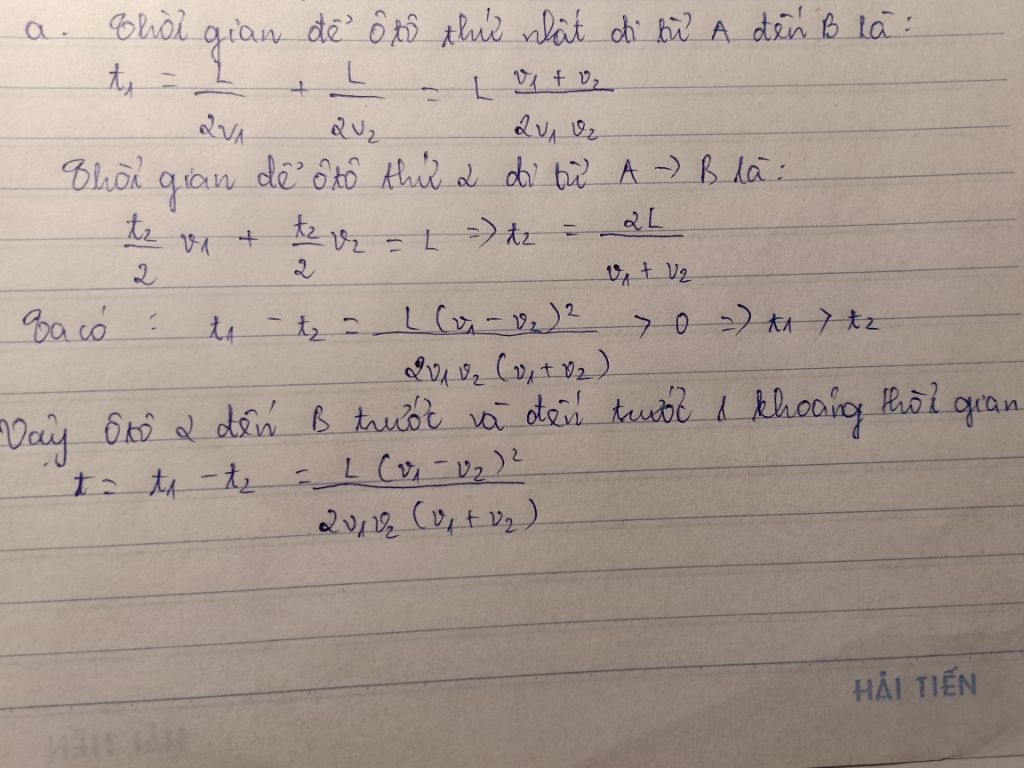 a. Thời gian để ôtô thứ nhất đi từ A đến B là:
t₁ = L/2v₁ + L/2v₂ = L (v₁ + v₂)/2v₁v₂
Thời gian để ôtô thứ 2 đi từ A → B là:
t₂/2 v₁ + t₂/2 v₂ = L => t₂ = 2L/(v₁ + v₂)
Ta có : t₁ - t₂ = L(v₁ - v₂)²/2v₁v₂(v₁+v₂) > 0 => t₁ > t₂
Vậy ôtô 2 đến B trước và đến trước 1 khoảng thời gian
t = t₁ - t₂ = L(v₁ - v₂)²/2v₁v₂(v₁ + v₂)
HẢI TIẾN